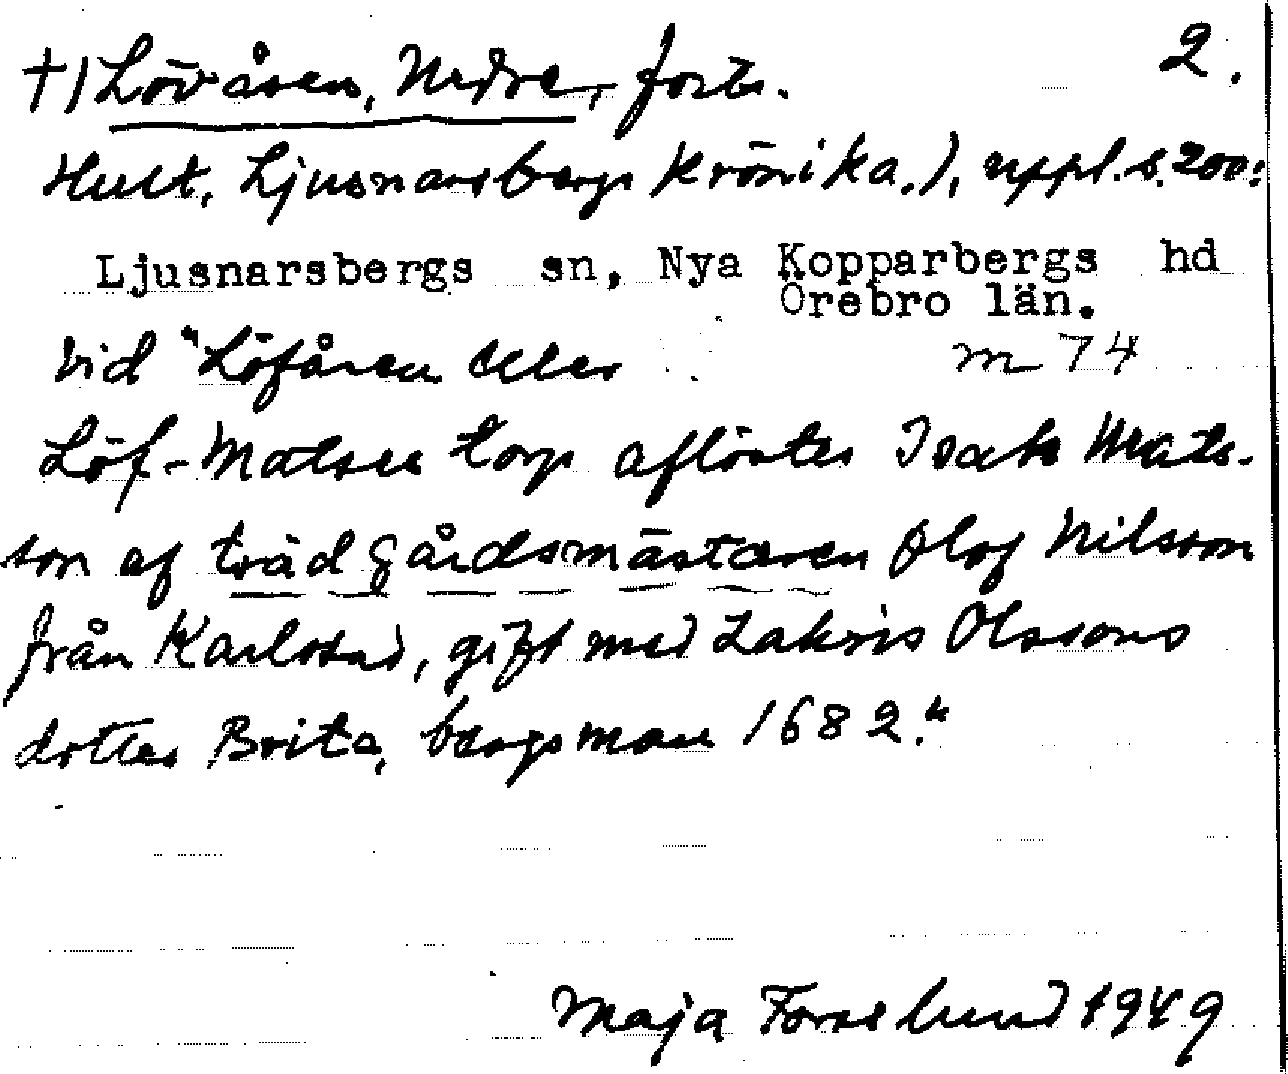 †) Lövåsen, Nedre, forts. 2.
Hult, Ljusnarsbergs krönika.), uppl. s. 200:
Ljusnarsbergs sn, Nya Kopparbergs hd
Örebro län.
Vid "Löfåsen eller m 74
Löf-Matses torp aflöstes Isak Mats-
son af trädgårdsmästaren Olof Nilsson
från Karlstad, gift med Lakris Olssons
dotter Brita, bergsman 1682."
Maja Forslund 1949